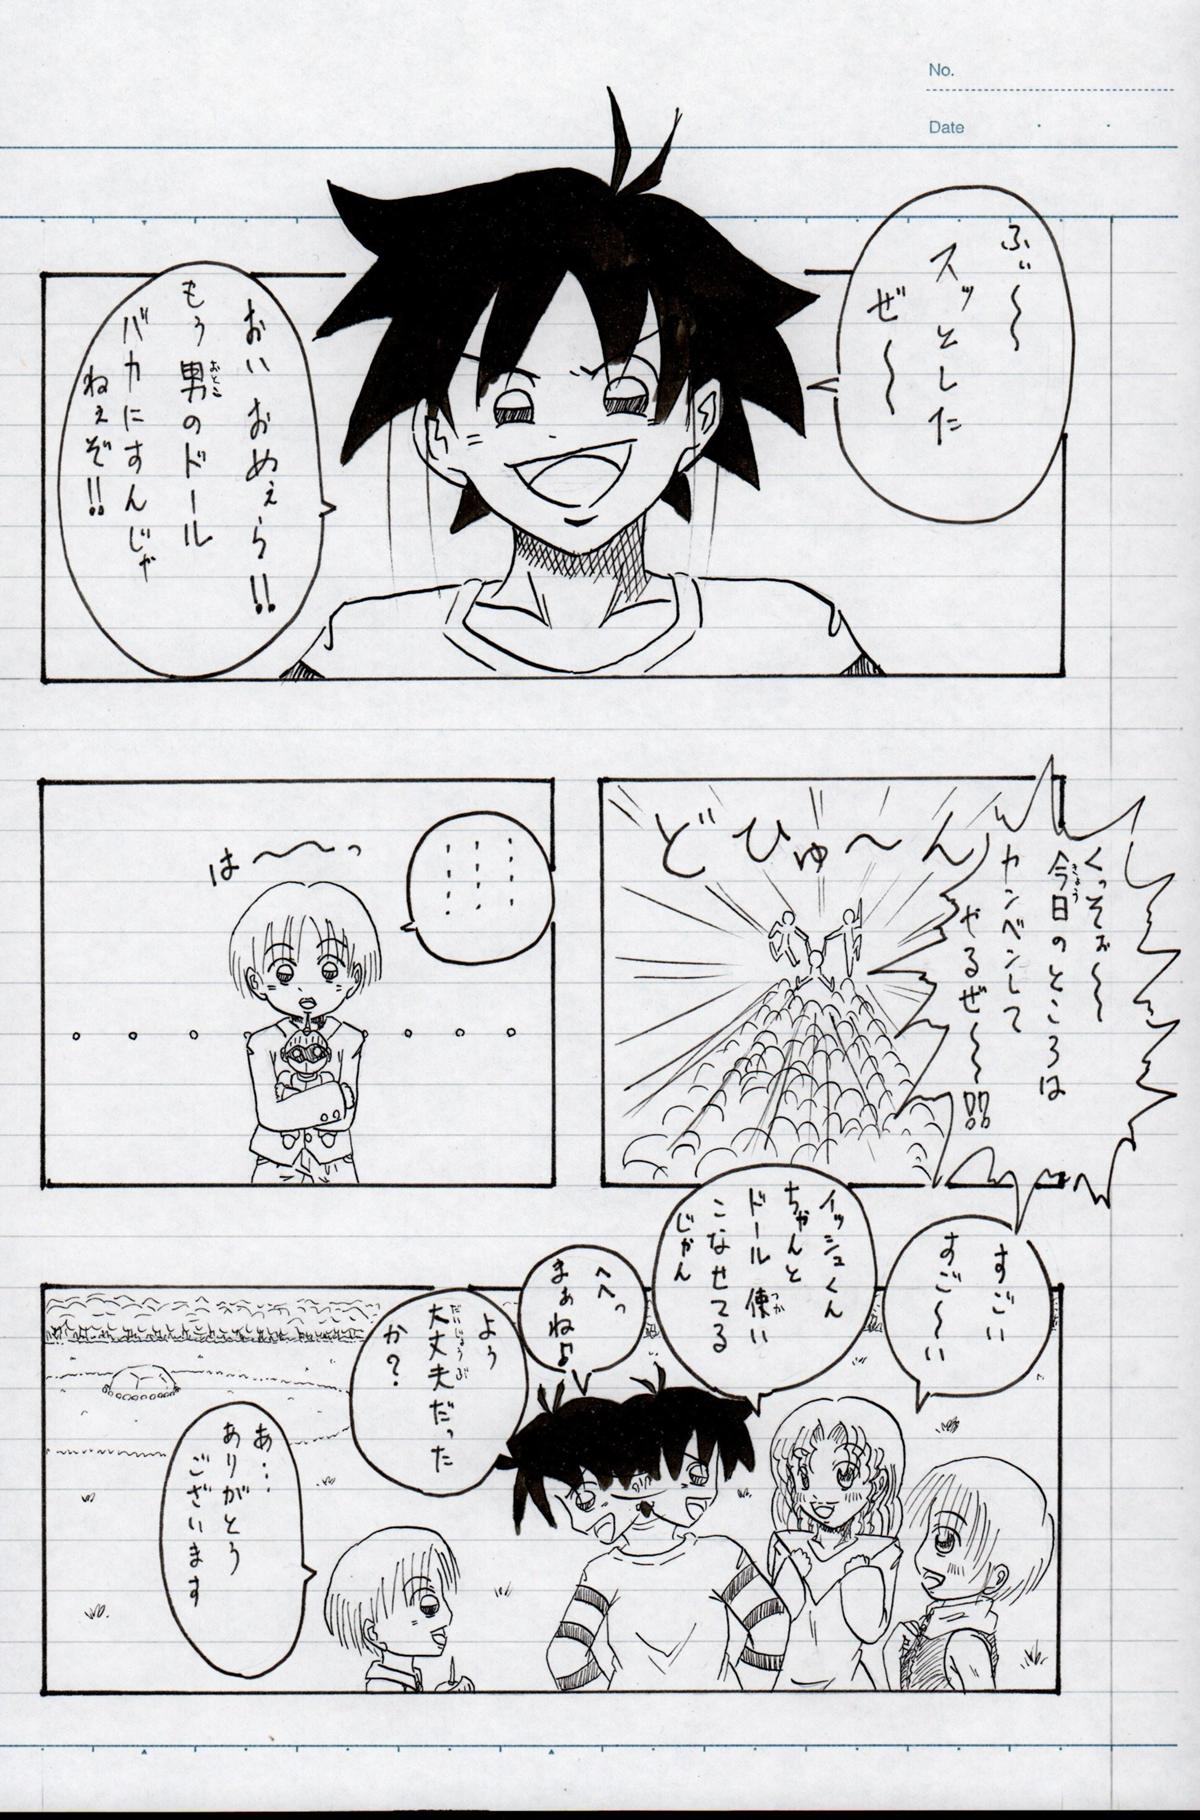 No.
Date
ふぃ〜〜
スッとした
ぜ〜〜
おいおめぇら!!
もう男のドール
おとこ
バカにすんじゃ
ねぇぞ!!
くっそぉ〜〜
今日のところは
きょう
カンベンして
やるぜ〜〜!!
どひゅ〜ん
………
は〜〜っ
すごい
すご〜い
イッシュくん
ちゃんと
ドール使い
つか
こなせてる
じゃん
へへっ
まぁね♪
よぅ
大丈夫だった
だいじょうぶ
か？
あ…
ありがとう
ございます